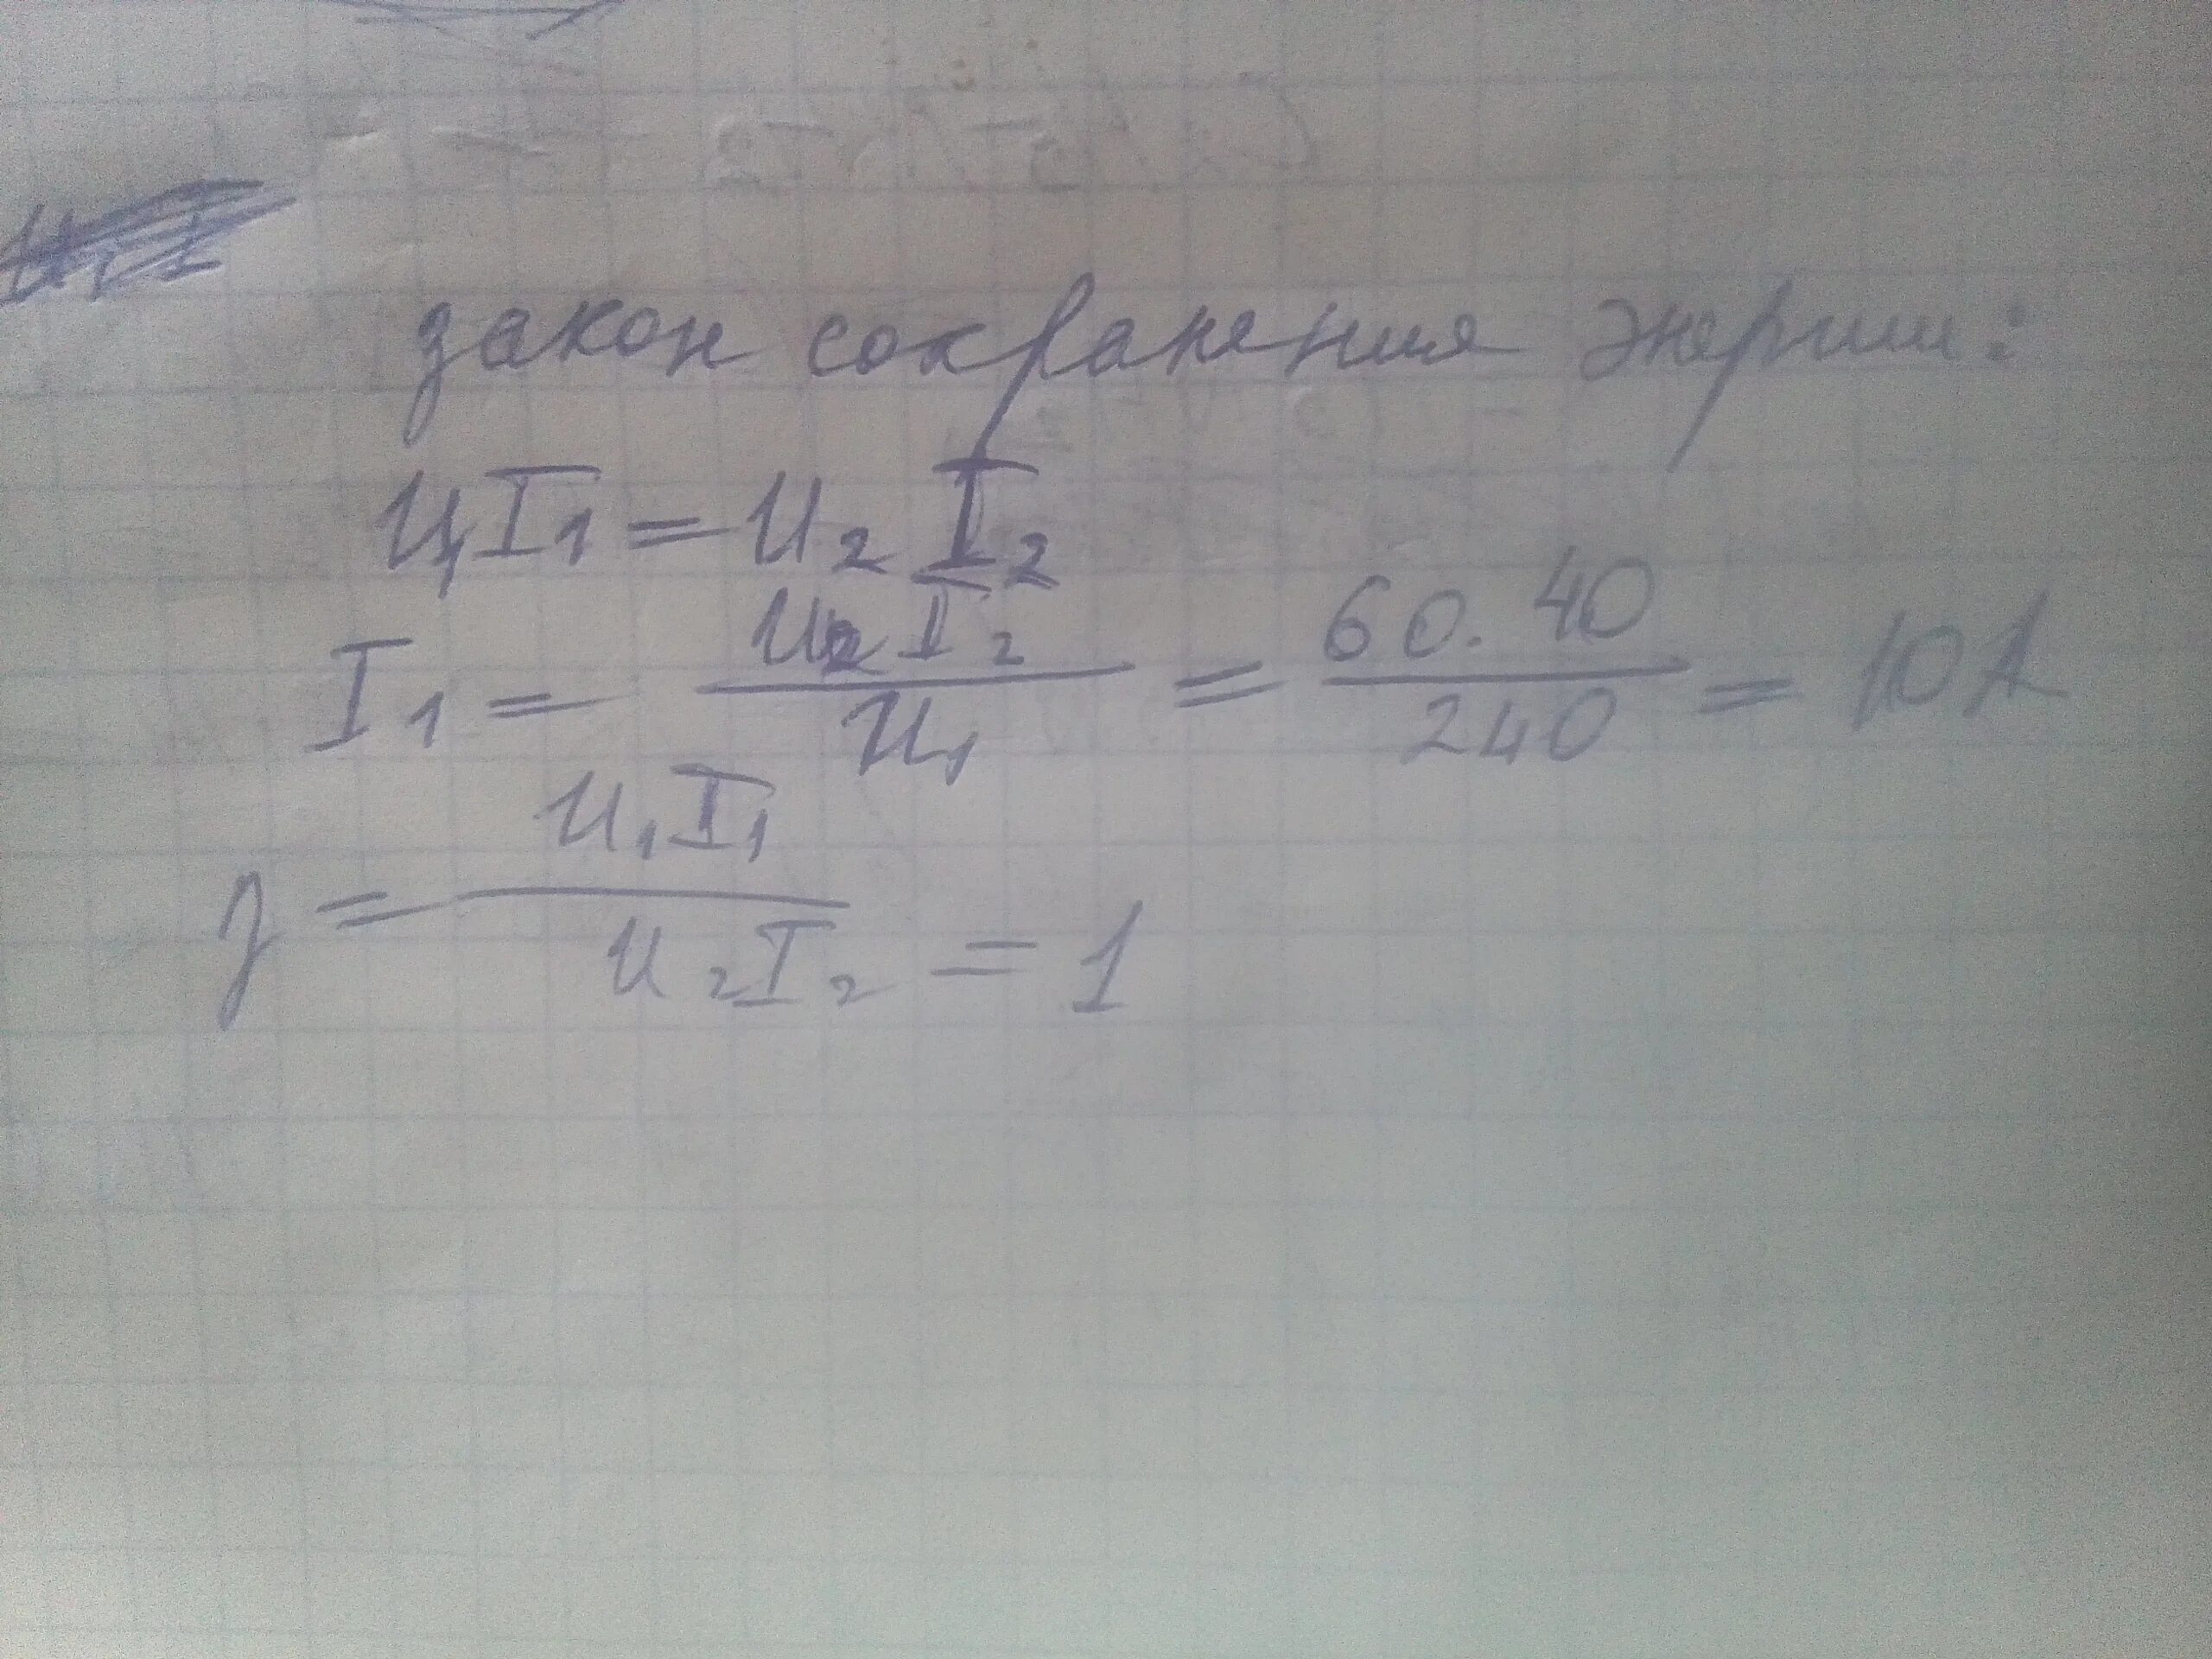 закон сохранения энергии:
U₁I₁ = U₂I₂
I₁ = U₂I₂ / U₁ = 60·40 / 240 = 10A
η = U₁I₁ / U₂I₂ = 1